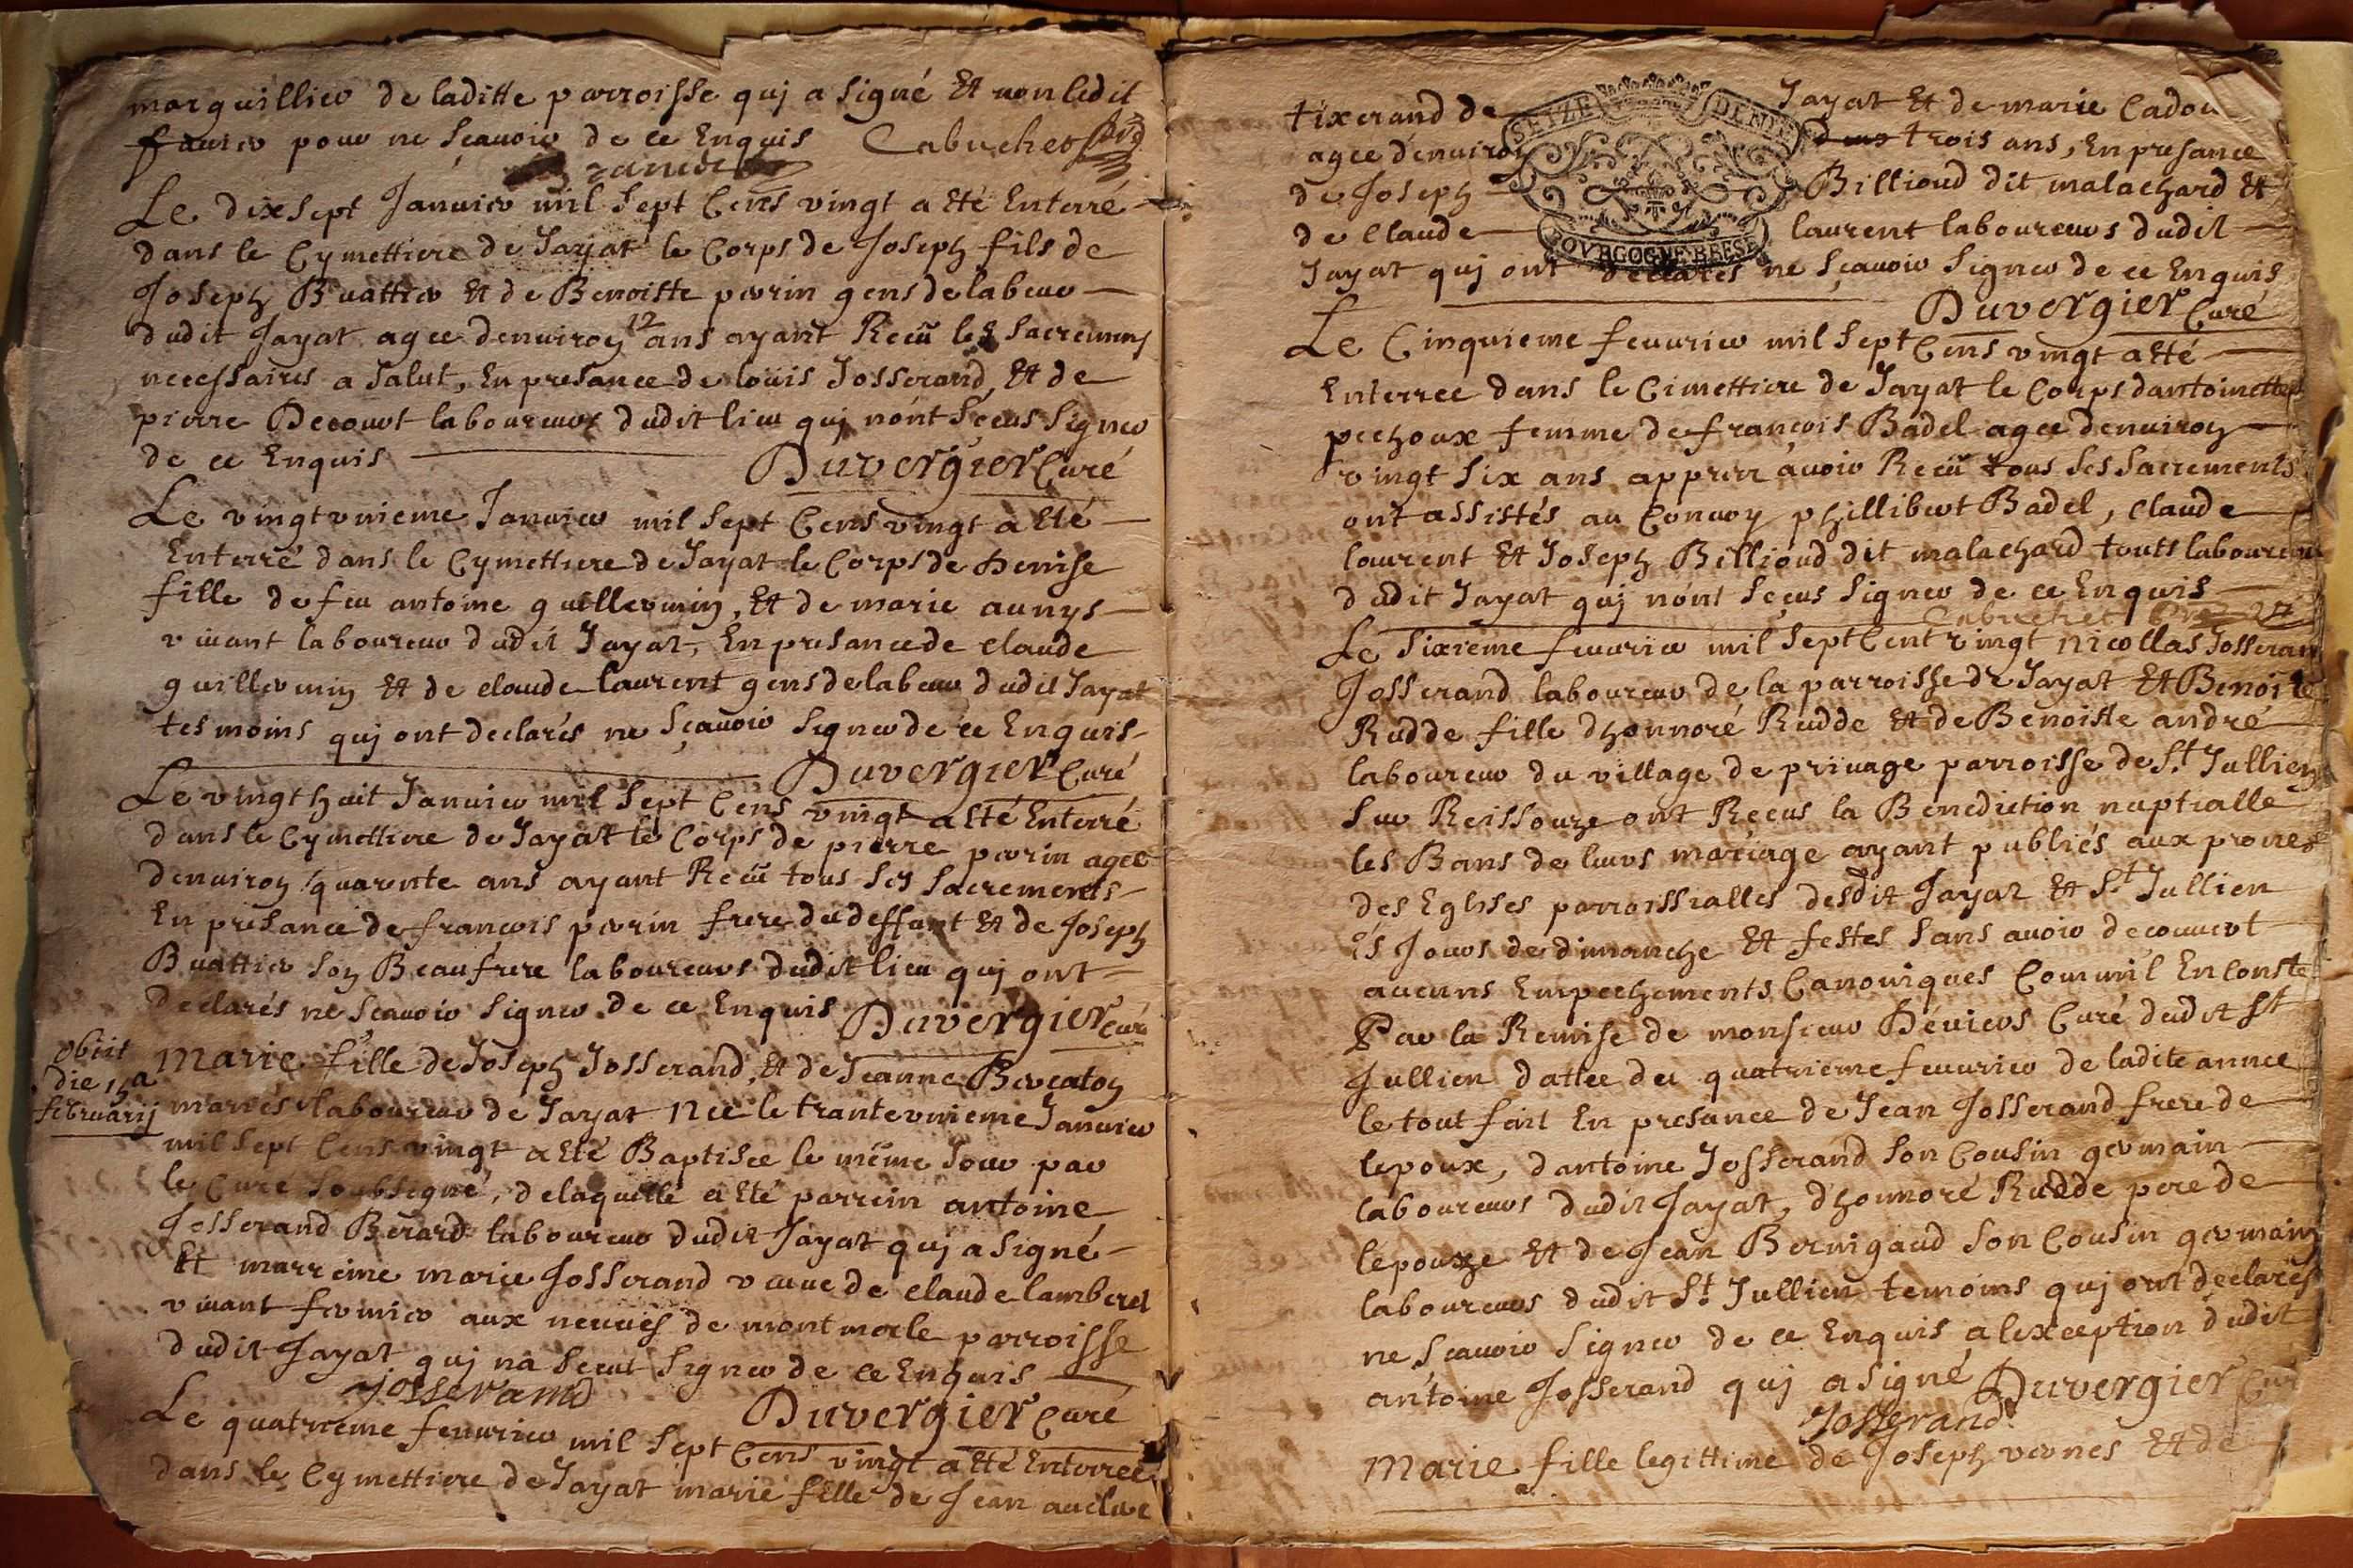 marguillier de laditte parroisse quj a signé Et non ledit
favier pour ne sçauoir de ce Enquis Cabuchet
Le dixsept Januier mil sept Cens vingt a Eté Enterré
dans le Cymettiere de Jayat le Corps de Joseph fils de
Joseph Buattier Et de Benoitte perrin gens de labeur
dudit Jayat agee denuiron 12 ans ayant Receü les sacremens
necessaires a salut, En presance de loüis Josserand, Et de
pierre Decourt laboureurs dudit lieu quj nónt sçeus signer
de ce Enquis Duvergier Curé
Le vingtvnieme Januier mil sept Cens vingt a Eté
Enterré dans le Cymettiere de Jayat le Corps de Denise
fille de feu antoine guillermin, Et de marie aunys
viuant laboureur dudit Jayat, En presance de claude
guillermin Et de claude laurent gens de labeur dudit Jayat
tesmoins quj ont declarés ne sçauoir signer de ce Enquis
Duvergier Curé
Le vingt huit Januier mil sept Cens vingt a Eté Enterré
dans le Cymettiere de Jayat le Corps de pierre perrin agee
denuiron quarente ans ayant Receü tous ses sacrements
En presance de françois perrin frere du deffunt Et de Joseph
Buattier son Beaufrere laboureurs dudit lieu quj ont
declarés ne scauoir signer de ce Enquis Duvergier Curé
obiit
die 15a
februarij
Marie fille de Joseph Josserand, Et de Jeanne Brocaton
mariés laboureur de Jayat Née le trantevnieme Januier
mil sept Cens vingt a Eté Baptisee le mëme Jour par
le Curé soubsigné, delaquelle a Eté parrein antoine
Josserand Berard laboureur dudit Jayat quj a signé
Et marreine marie Josserand veuue de claude lamberet
viuant fermier aux neuues de montmorle parroisse
dudit Jayat quj na sceut signer de ce Enquis
Josserand Duvergier Curé
Le quatrieme feurier mil sept Cens vingt a Eté Enterree
dans le Cymettiere de Jayat marie fille de Jean auclerc
tixerand de Jayat Et de marie Cadou
SEIZE DENIE
BOVRGOGNE BRESSE
agee denuiron trois ans, En presance
de Joseph Billioud dit malachard Et
de Claude laurent laboureurs dudit
Jayat quj ont declarés ne sçauoir signer de ce Enquis
Duvergier Curé
Le Cinquieme feurier mil sept Cens vingt a Eté
Enterree dans le Cimettiere de Jayat le Corps dantoinette
pechoux femme de françois Badel agee denuiron
vingt six ans apprez auoir Receü tous ses sacrements
ont assistés au Conuoy phillibert Badel, Claude
laurent Et Joseph Billioud dit malachard touts laboureurs
dudit Jayat quj nónt sçeus signer de ce Enquis
Cabuchet
Le sixieme feurier mil sept Cent vingt Nicollas Josseran
Josserand laboureur de la parroisse de Jayat Et Benoite
Rudde fille dhonnoré Rudde Et de Benoitte andré
laboureur du village de priuage parroisse de St Jullien
sur Reissouze ont Receus la Benediction nuptialle
les Bans de leurs mariage ayant publiés aux prones
des Eglises parroissialles desdit Jayat Et St Jullien
és Jours de dimanche Et festes sans auoir decouuert
aucuns Empechements Canoniques Comm'il En Conste
Par la Remise de monsieur Déuiers Curé dudit St
Jullien dattee du quatrieme feurier de ladite annee
le tout fait En presance de Jean Josserand frere de
lepoux, dantoine Josserand son Cousin germain
laboureurs dudit Jayat, dhonnoré Rudde pere de
lépouze Et de Jean Bernigaud son Cousin germain
laboureurs dudit St Jullien temoins quj ont declarés
ne scauoir signer de ce Enquis a lexception dudit
antoine Josserand quj a signé Duvergier Curé
Josserand
Marie fille legittime de Joseph vernes Et de